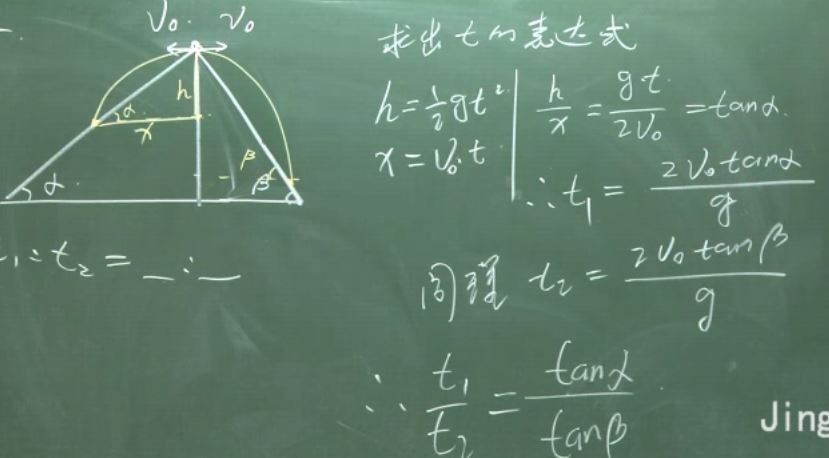 V₀. V₀
h
α.
x
β
α.
β
t₁:t₂ = _:_
求出t的表达式
h=½gt²
x=V₀.t
h/x = gt/2V₀ =tanα.
∴t₁ = 2V₀tanα/g
同理 t₂ = 2V₀tanβ/g
∴ t₁/t₂ = tanα/tanβ.
Jing